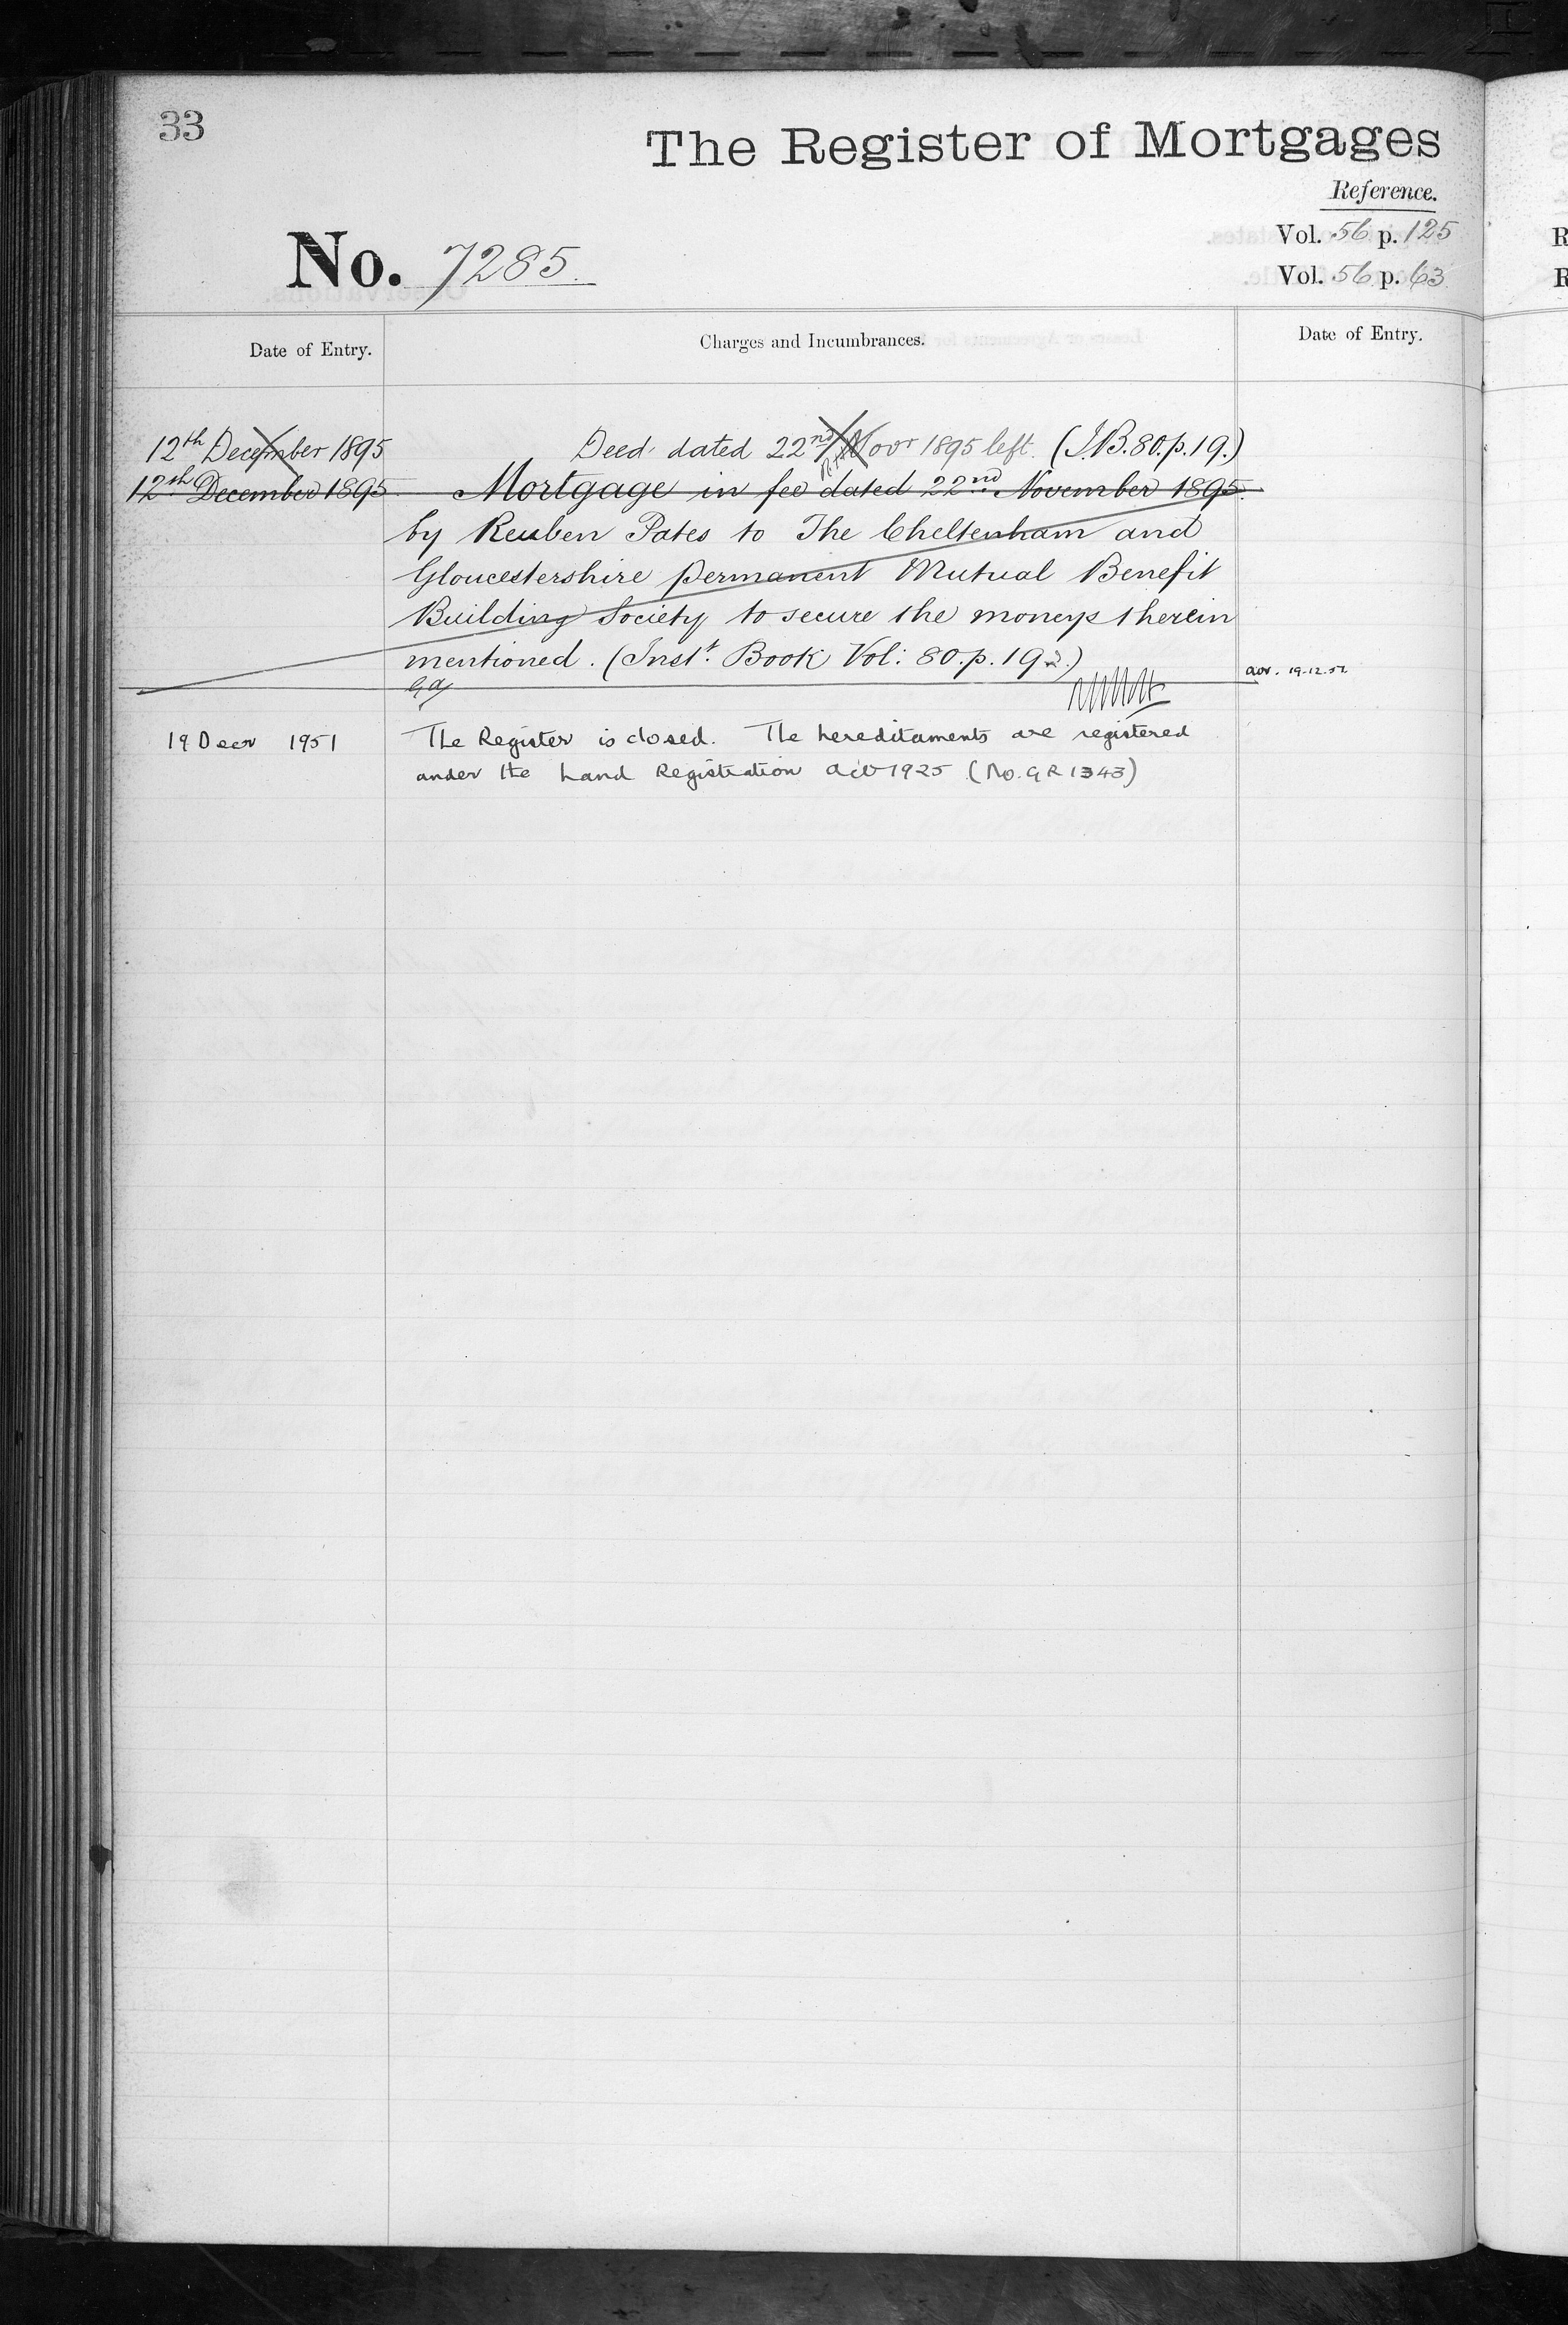 33
The Register of Mortgages
Reference.
Vol. 56 p. 125
No. 7285.
Vol. 56 p. 63
Date of Entry.
Charges and Incumbrances.
Date of Entry.
12th December 1895
Deed dated 22nd Novr 1895 left. (I.B. 80. p. 19.)
12th December 1895
Mortgage in fee dated 22nd November 1895.
by Reuben Pates to The Cheltenham and
Gloucestershire permanent Mutual Benefit
Building Society to secure the moneys therein
mentioned. (Inst. Book Vol: 80. p. 192.)
19 Decr 1951
The Register is closed. The hereditaments are registered
under the Land Registration Act 1925 (No. GR 1343)